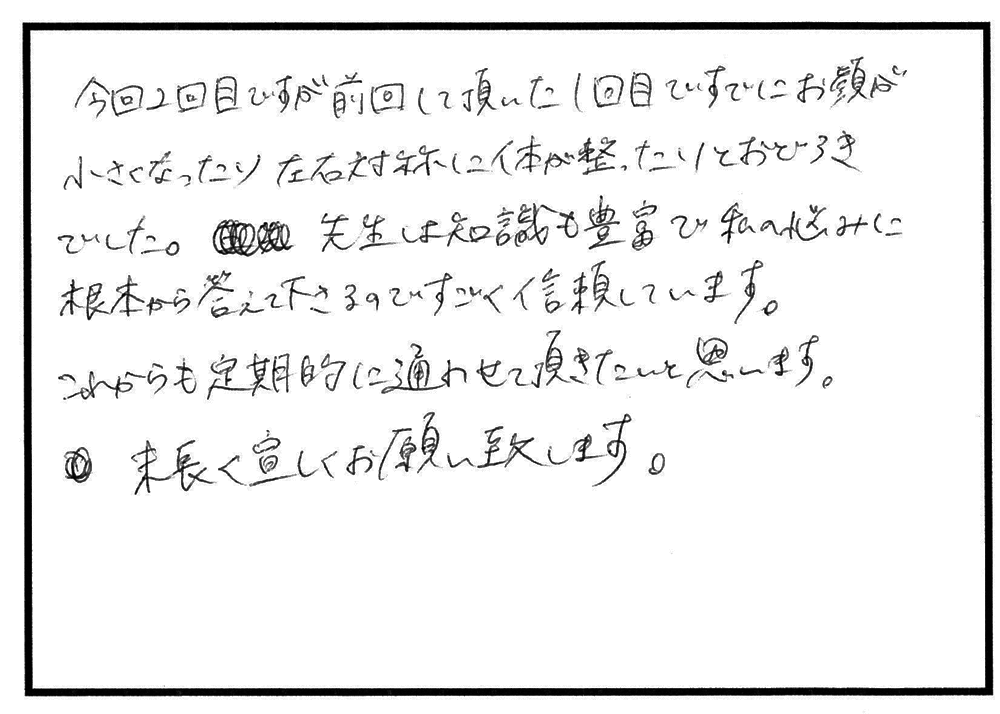 今回2回目ですが前回して頂いた1回目ですでにお顔が
小さくなったり左右対称に体が整ったりとおどろき
でした。先生は知識も豊富で私の悩みに
根本から答えて下さるのですごく信頼しています。
これからも定期的に通わせて頂きたいと思います。
末長く宜しくお願い致します。